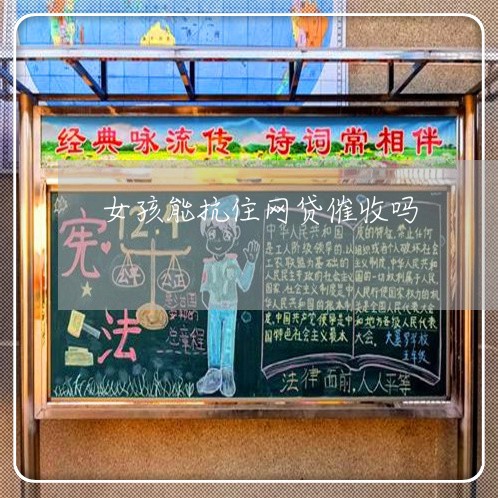 经典咏流传 诗词常相伴
女孩能抗住网贷催收吗
宪法
12.4
公平
公正
总章程
中华人民共和国
是工人阶级领导的,以
工农联盟为基础的
人民民主专政的社会主义
国家,社会主义制度是中
华人民共和国的根本制
度,中国共产党领导是中
国特色社会主义最本
质的特征,禁止任何
组织或者个人破坏社会
主义制度,中华人民共和
国的一切权利属于人民,
人民行使国家权力的机
关是全国人民代表大会
和地方各级人民代表
大会。
五年级
法律面前,人人平等